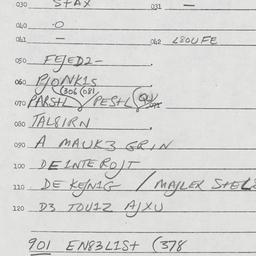 030 STAX 031 —
040 -0
041 — 042 L80UFE
050 FEJED2-
060 PJONK1S
070 PARS+L (306 (081 / PESTL
080 TAL8IRN
090 A MAUK3 GRIN
100 DEINTEROJT
110 DE KEJN1G / MAJLEX STEL8
120 D3 TOU1Z AJXU
901 EN83LIST (378